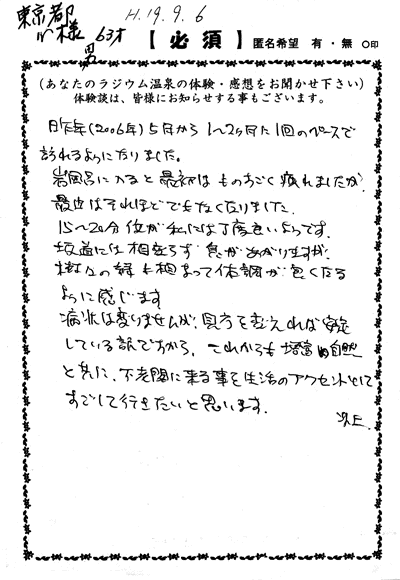 東京都 H.19.9.6
M様 63才
男
【必須】 匿名希望 有・無 ○印
(あなたのラジウム温泉の体験・感想をお聞かせ下さい)
体験談は、皆様にお知らせする事もございます。
昨年(2006年)5月から1〜2ヶ月に1回のペースで
訪れるようになりました。
岩風呂に入ると最初はものすごく疲れましたが、
最近はそれほどでもなくなりました。
15〜20分位が私には丁度良いようです。
坂道には相変らず息があがりますが、
木々の緑も相まって体調が良くなる
ように感じます
病状は変りませんが、見方を変えれば安定
している訳ですから、これからも増富の自然
と共に、不老閣に来る事を生活のアクセントとして
すごして行きたいと思います。
以上.